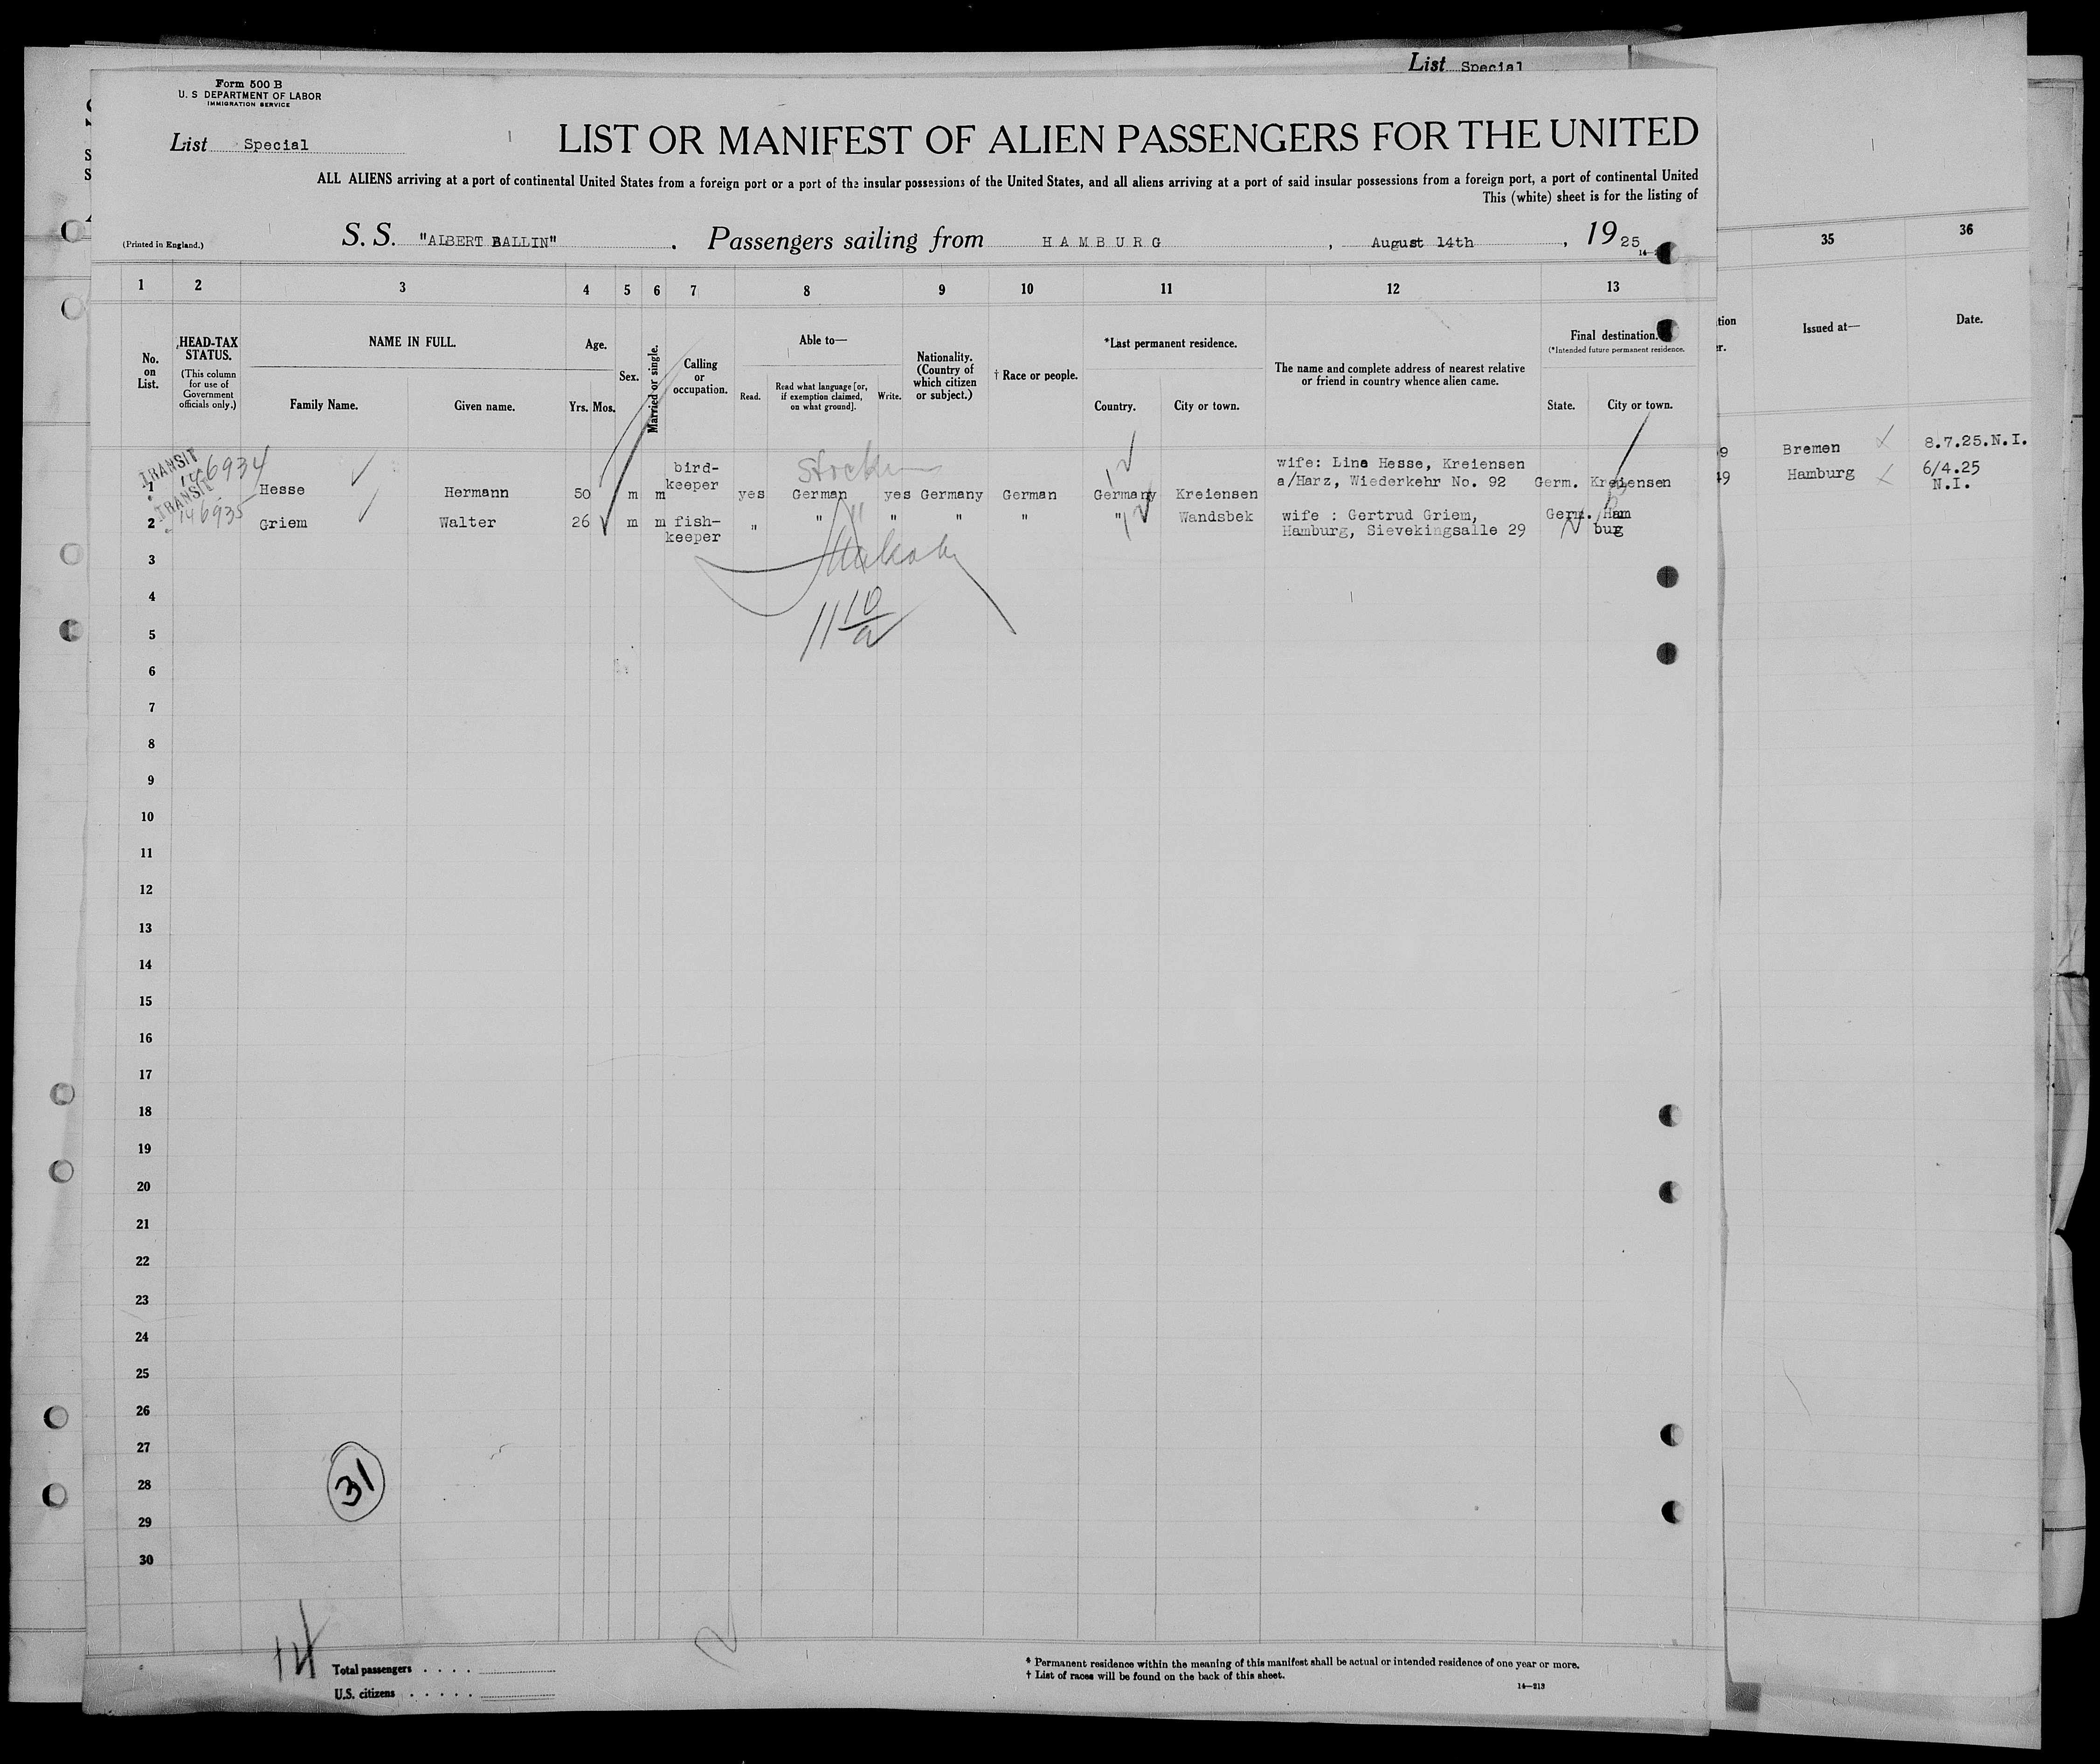 List Special
Form 500 B
U. S DEPARTMENT OF LABOR
IMMIGRATION SERVICE
List Special
LIST OR MANIFEST OF ALIEN PASSENGERS FOR THE UNITED
ALL ALIENS arriving at a port of continental United States from a foreign port or a port of the insular possessions of the United States, and all aliens arriving at a port of said insular possessions from a foreign port, a port of continental United
This (white) sheet is for the listing of
(Printed in England.)
S. S. "ALBERT BALLIN" . Passengers sailing from HAMBURG , August 14th , 1925
1 2 3 4 5 6 7 8 9 10 11 12 13 35 36
No. on List.
HEAD-TAX STATUS.
(This column for use of Government officials only.)
NAME IN FULL.
Family Name. Given name.
Age.
Yrs. Mos.
Sex.
Married or single.
Calling or occupation.
Able to—
Read. Read what language [or, if exemption claimed, on what ground]. Write.
Nationality. (Country of which citizen or subject.)
† Race or people.
*Last permanent residence.
Country. City or town.
The name and complete address of nearest relative or friend in country whence alien came.
Final destination.
(*Intended future permanent residence.
State. City or town.
Issued at— Date.
TRANSIT
146934
1 Hesse Hermann 50 m m bird-keeper yes German yes Germany German Germany Kreiensen wife: Lina Hesse, Kreiensen a/Harz, Wiederkehr No. 92 Germ. Kreiensen 9 Bremen 8.7.25.N.I.
TRANSIT
146935
2 Griem Walter 26 m m fish-keeper " " " " " " Wandsbek wife : Gertrud Griem, Hamburg, Sievekingsalle 29 Germ. Hamburg 49 Hamburg 6/4.25 N.I.
3
4
5
6
7
8
9
10
11
12
13
14
15
16
17
18
19
20
21
22
23
24
25
26
27
28
29
30
31
14
2
Total passengers . . . .
U.S. citizens . . . . .
* Permanent residence within the meaning of this manifest shall be actual or intended residence of one year or more.
† List of races will be found on the back of this sheet.
14—213